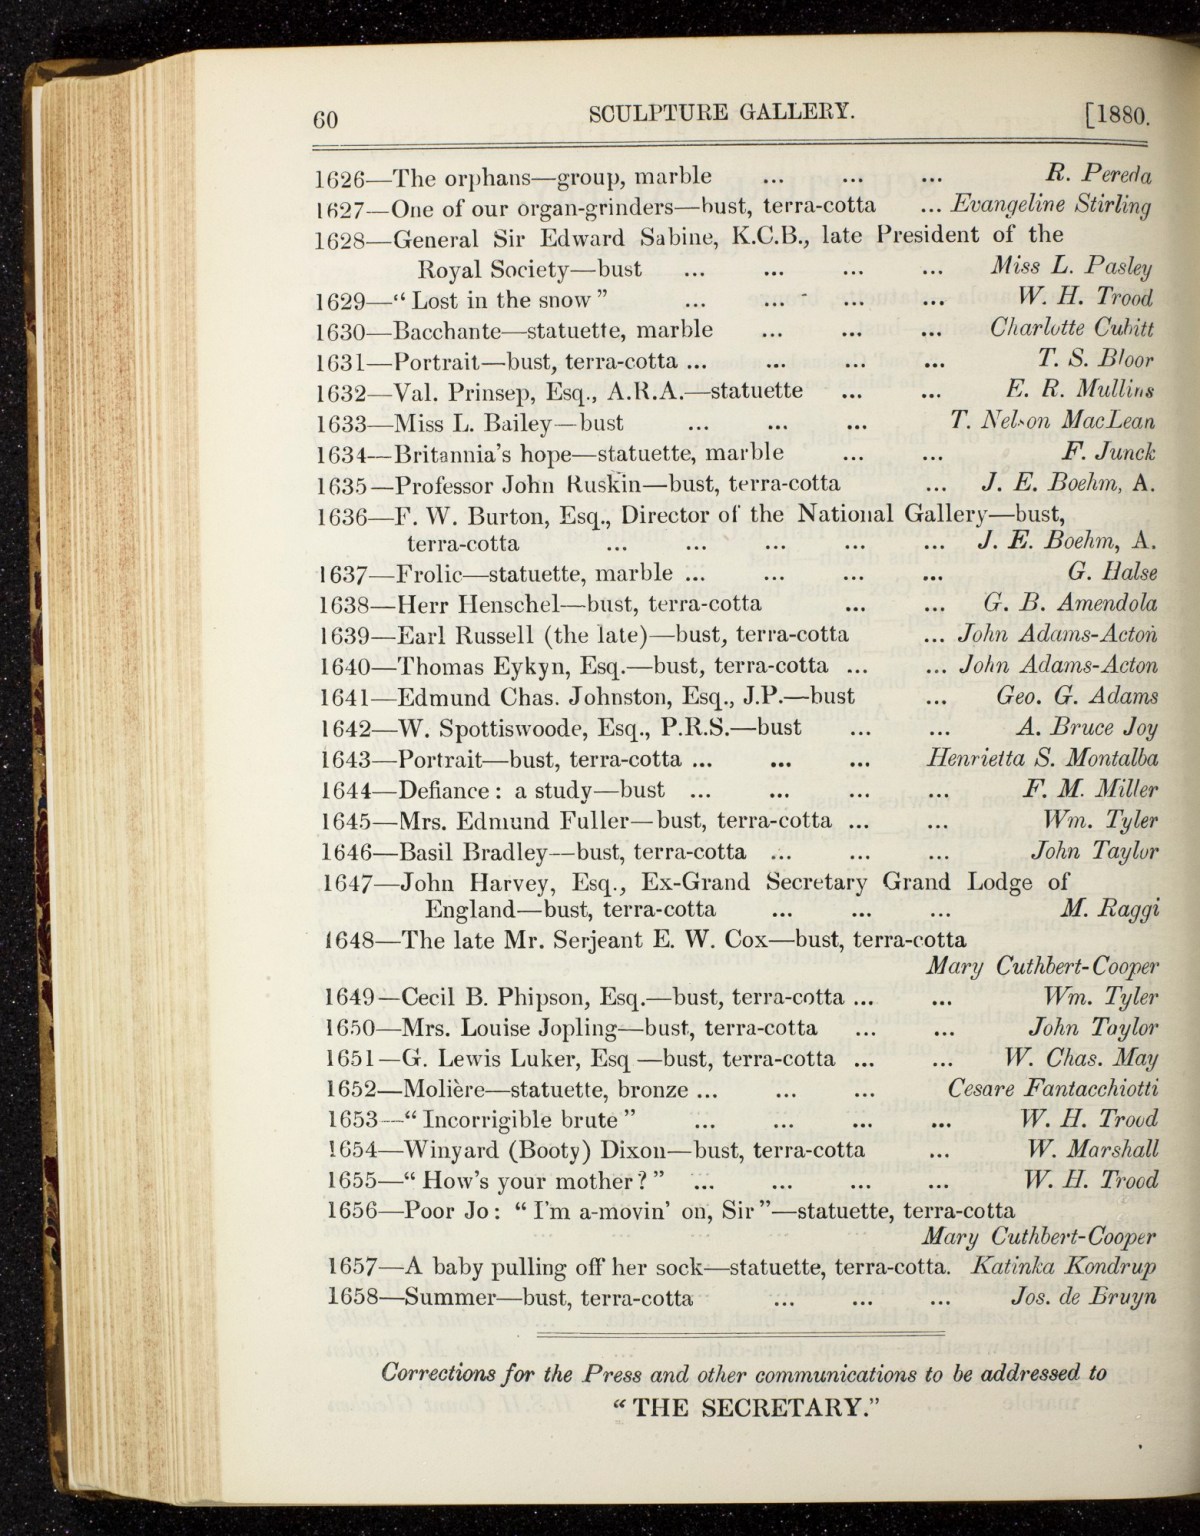 60 SCULPTURE GALLERY. [1880.
1626—The orphans—group, marble ... ... ... R. Pereda
1627—One of our organ-grinders—bust, terra-cotta ... Evangeline Stirling
1628—General Sir Edward Sabine, K.C.B., late President of the
Royal Society—bust ... ... ... ... Miss L. Pasley
1629—“Lost in the snow” ... ... ... ... W. H. Trood
1630—Bacchante—statuette, marble ... ... ... Charlotte Cubitt
1631—Portrait—bust, terra-cotta ... ... ... ... T. S. Bloor
1632—Val. Prinsep, Esq., A.R.A.—statuette ... ... E. R. Mullins
1633—Miss L. Bailey—bust ... ... ... T. Nelson MacLean
1634—Britannia's hope—statuette, marble ... ... F. Junck
1635—Professor John Ruskin—bust, terra-cotta ... J. E. Boehm, A.
1636—F. W. Burton, Esq., Director of the National Gallery—bust,
terra-cotta ... ... ... ... ... J. E. Boehm, A.
1637—Frolic—statuette, marble ... ... ... ... G. Halse
1638—Herr Henschel—bust, terra-cotta ... ... G. B. Amendola
1639—Earl Russell (the late)—bust, terra-cotta ... John Adams-Acton
1640—Thomas Eykyn, Esq.—bust, terra-cotta ... ... John Adams-Acton
1641—Edmund Chas. Johnston, Esq., J.P.—bust ... Geo. G. Adams
1642—W. Spottiswoode, Esq., P.R.S.—bust ... ... A. Bruce Joy
1643—Portrait—bust, terra-cotta ... ... ... Henrietta S. Montalba
1644—Defiance: a study—bust ... ... ... ... F. M. Miller
1645—Mrs. Edmund Fuller—bust, terra-cotta ... ... Wm. Tyler
1646—Basil Bradley—bust, terra-cotta ... ... ... John Taylor
1647—John Harvey, Esq., Ex-Grand Secretary Grand Lodge of
England—bust, terra-cotta ... ... ... M. Raggi
1648—The late Mr. Serjeant E. W. Cox—bust, terra-cotta
Mary Cuthbert-Cooper
1649—Cecil B. Phipson, Esq.—bust, terra-cotta ... ... Wm. Tyler
1650—Mrs. Louise Jopling—bust, terra-cotta ... ... John Taylor
1651—G. Lewis Luker, Esq —bust, terra-cotta ... ... W. Chas. May
1652—Molière—statuette, bronze ... ... ... Cesare Fantacchiotti
1653—“Incorrigible brute” ... ... ... ... W. H. Trood
1654—Winyard (Booty) Dixon—bust, terra-cotta ... W. Marshall
1655—“How's your mother?” ... ... ... ... W. H. Trood
1656—Poor Jo: “I'm a-movin' on, Sir”—statuette, terra-cotta
Mary Cuthbert-Cooper
1657—A baby pulling off her sock—statuette, terra-cotta. Katinka Kondrup
1658—Summer—bust, terra-cotta ... ... ... Jos. de Bruyn
Corrections for the Press and other communications to be addressed to
“THE SECRETARY.”